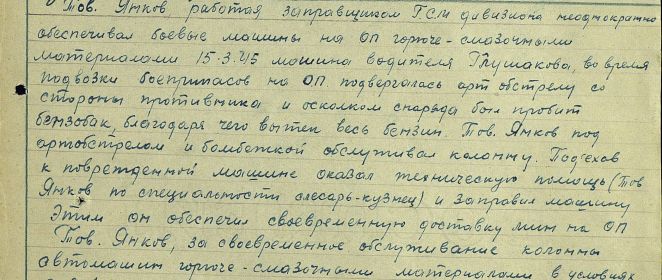 Тов. Янков работая заправщиком ГСМ дивизиона неоднократно
обеспечивал боевые машины на ОП горюче-смазочными
материалами 15.3.45 машина водителя Глушакова, во время
подвозки боеприпасов на ОП. подвергалась арт обстрелу со
стороны противника и осколком снаряда был пробит
бензобак, благодаря чего вытек весь бензин. Тов. Янков под
артобстрелом и бомбежкой обслуживал колонну. Подъехав
к поврежденной машине оказал техническую помощь (Тов
Янков по специальности слесарь-кузнец) и заправил машину
Этим он обеспечил своевременную доставку мин на ОП
Тов. Янков, за своевременное обслуживание колонны
автомашин горюче-смазочными материалами в условиях